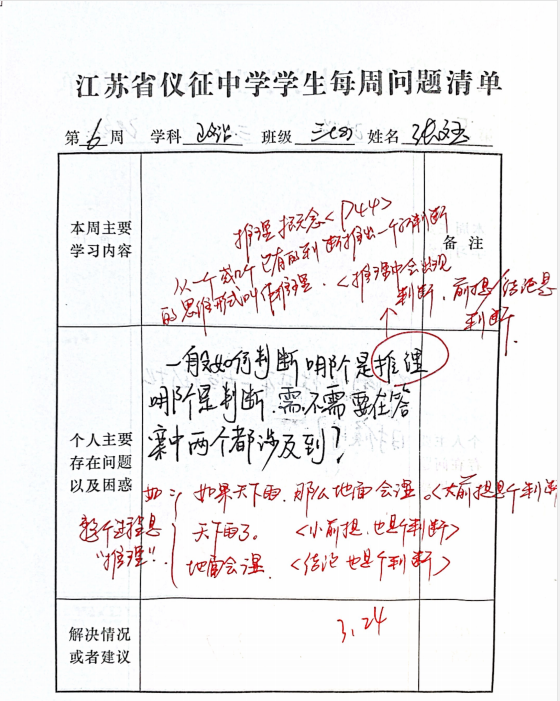 江苏省仪征中学学生每周问题清单
第 6 周 学科 政治 班级 三(四) 姓名
本周主要
学习内容
推理 概念<P44>
从一个或几个已有的判断推出一个新判断
的思维形式叫作推理.<推理中会出现
判断.前提/结论是
判断.
备 注
个人主要
存在问题
以及困惑
一般如何判断哪个是推理
哪个是判断.需不需要在答
案中两个都涉及到?
如: 如果天下雨.那么地面会湿。<大前提是个判断
天下雨了。 <小前提.也是个判断>
地面会湿. <结论也是个判断>
整个过程是
“推理”.
解决情况
或者建议
3.24